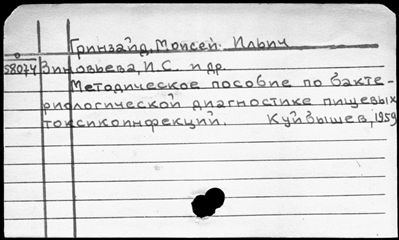 Гринзайд, Моисей Ильич
58074 Зиновьева, И.С. и др.
Методическое пособие по бакте-
риологической диагностике пищевых
токсикоинфекций. Куйбышев, 1959